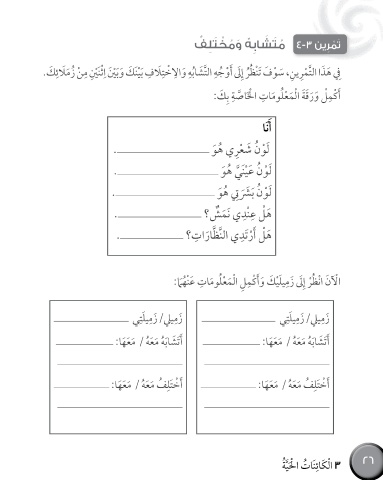 تَمْرين ٣-٤ مُتَشَابِهٌ وَمُخْتَلِفٌ
فِي هَذَا التَّمْرِينِ، سَوْفَ تَنْظُرُ إِلَى أَوْجُهِ التَّشَابُهِ وَالِاخْتِلَافِ بَيْنَكَ وَبَيْنَ اِثْنَيْنِ مِنْ زُمَلَائِكَ.
أَكْمِلْ وَرَقَةَ الْمَعْلُومَاتِ الْخَاصَّةِ بِكَ:
أَنَا
لَوْنُ شَعْرِي هُوَ ____________.
لَوْنُ عَيْنَيَّ هُوَ ____________.
لَوْنُ بَشَرَتِي هُوَ ____________.
هَلْ عِنْدِي نَمَشٌ؟ ____________.
هَلْ أَرْتَدِي النَّظَّارَاتِ؟ ____________.
الْآنَ انْظُرْ إِلَى زَمِيلَيْكَ وَأَكْمِلِ الْمَعْلُومَاتِ عَنْهُمَا:
زَمِيلِي/ زَمِيلَتِي ____________
أَتَشَابَهُ مَعَهُ / مَعَهَا: ____________
أَخْتَلِفُ مَعَهُ / مَعَهَا: ____________
زَمِيلِي/ زَمِيلَتِي ____________
أَتَشَابَهُ مَعَهُ / مَعَهَا: ____________
أَخْتَلِفُ مَعَهُ / مَعَهَا: ____________
٢٦ ٣ الْكَائِنَاتُ الْحَيَّةُ